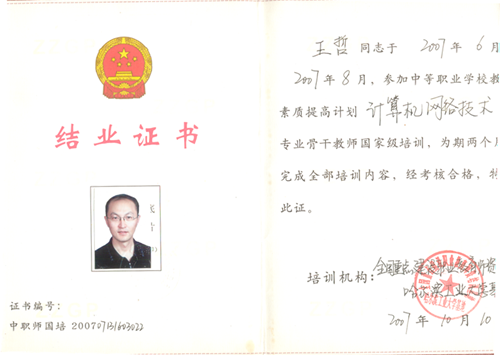 结业证书
证书编号:
中职师国培 20070731603022
王哲 同志于 2007 年 6 月
2007年8月,参加中等职业学校教
素质提高计划 计算机网络技术
专业骨干教师国家级培训,为期两个月
完成全部培训内容,经考核合格,特
此证。
培训机构:
哈尔滨工业大学
2007 年 10 月 10